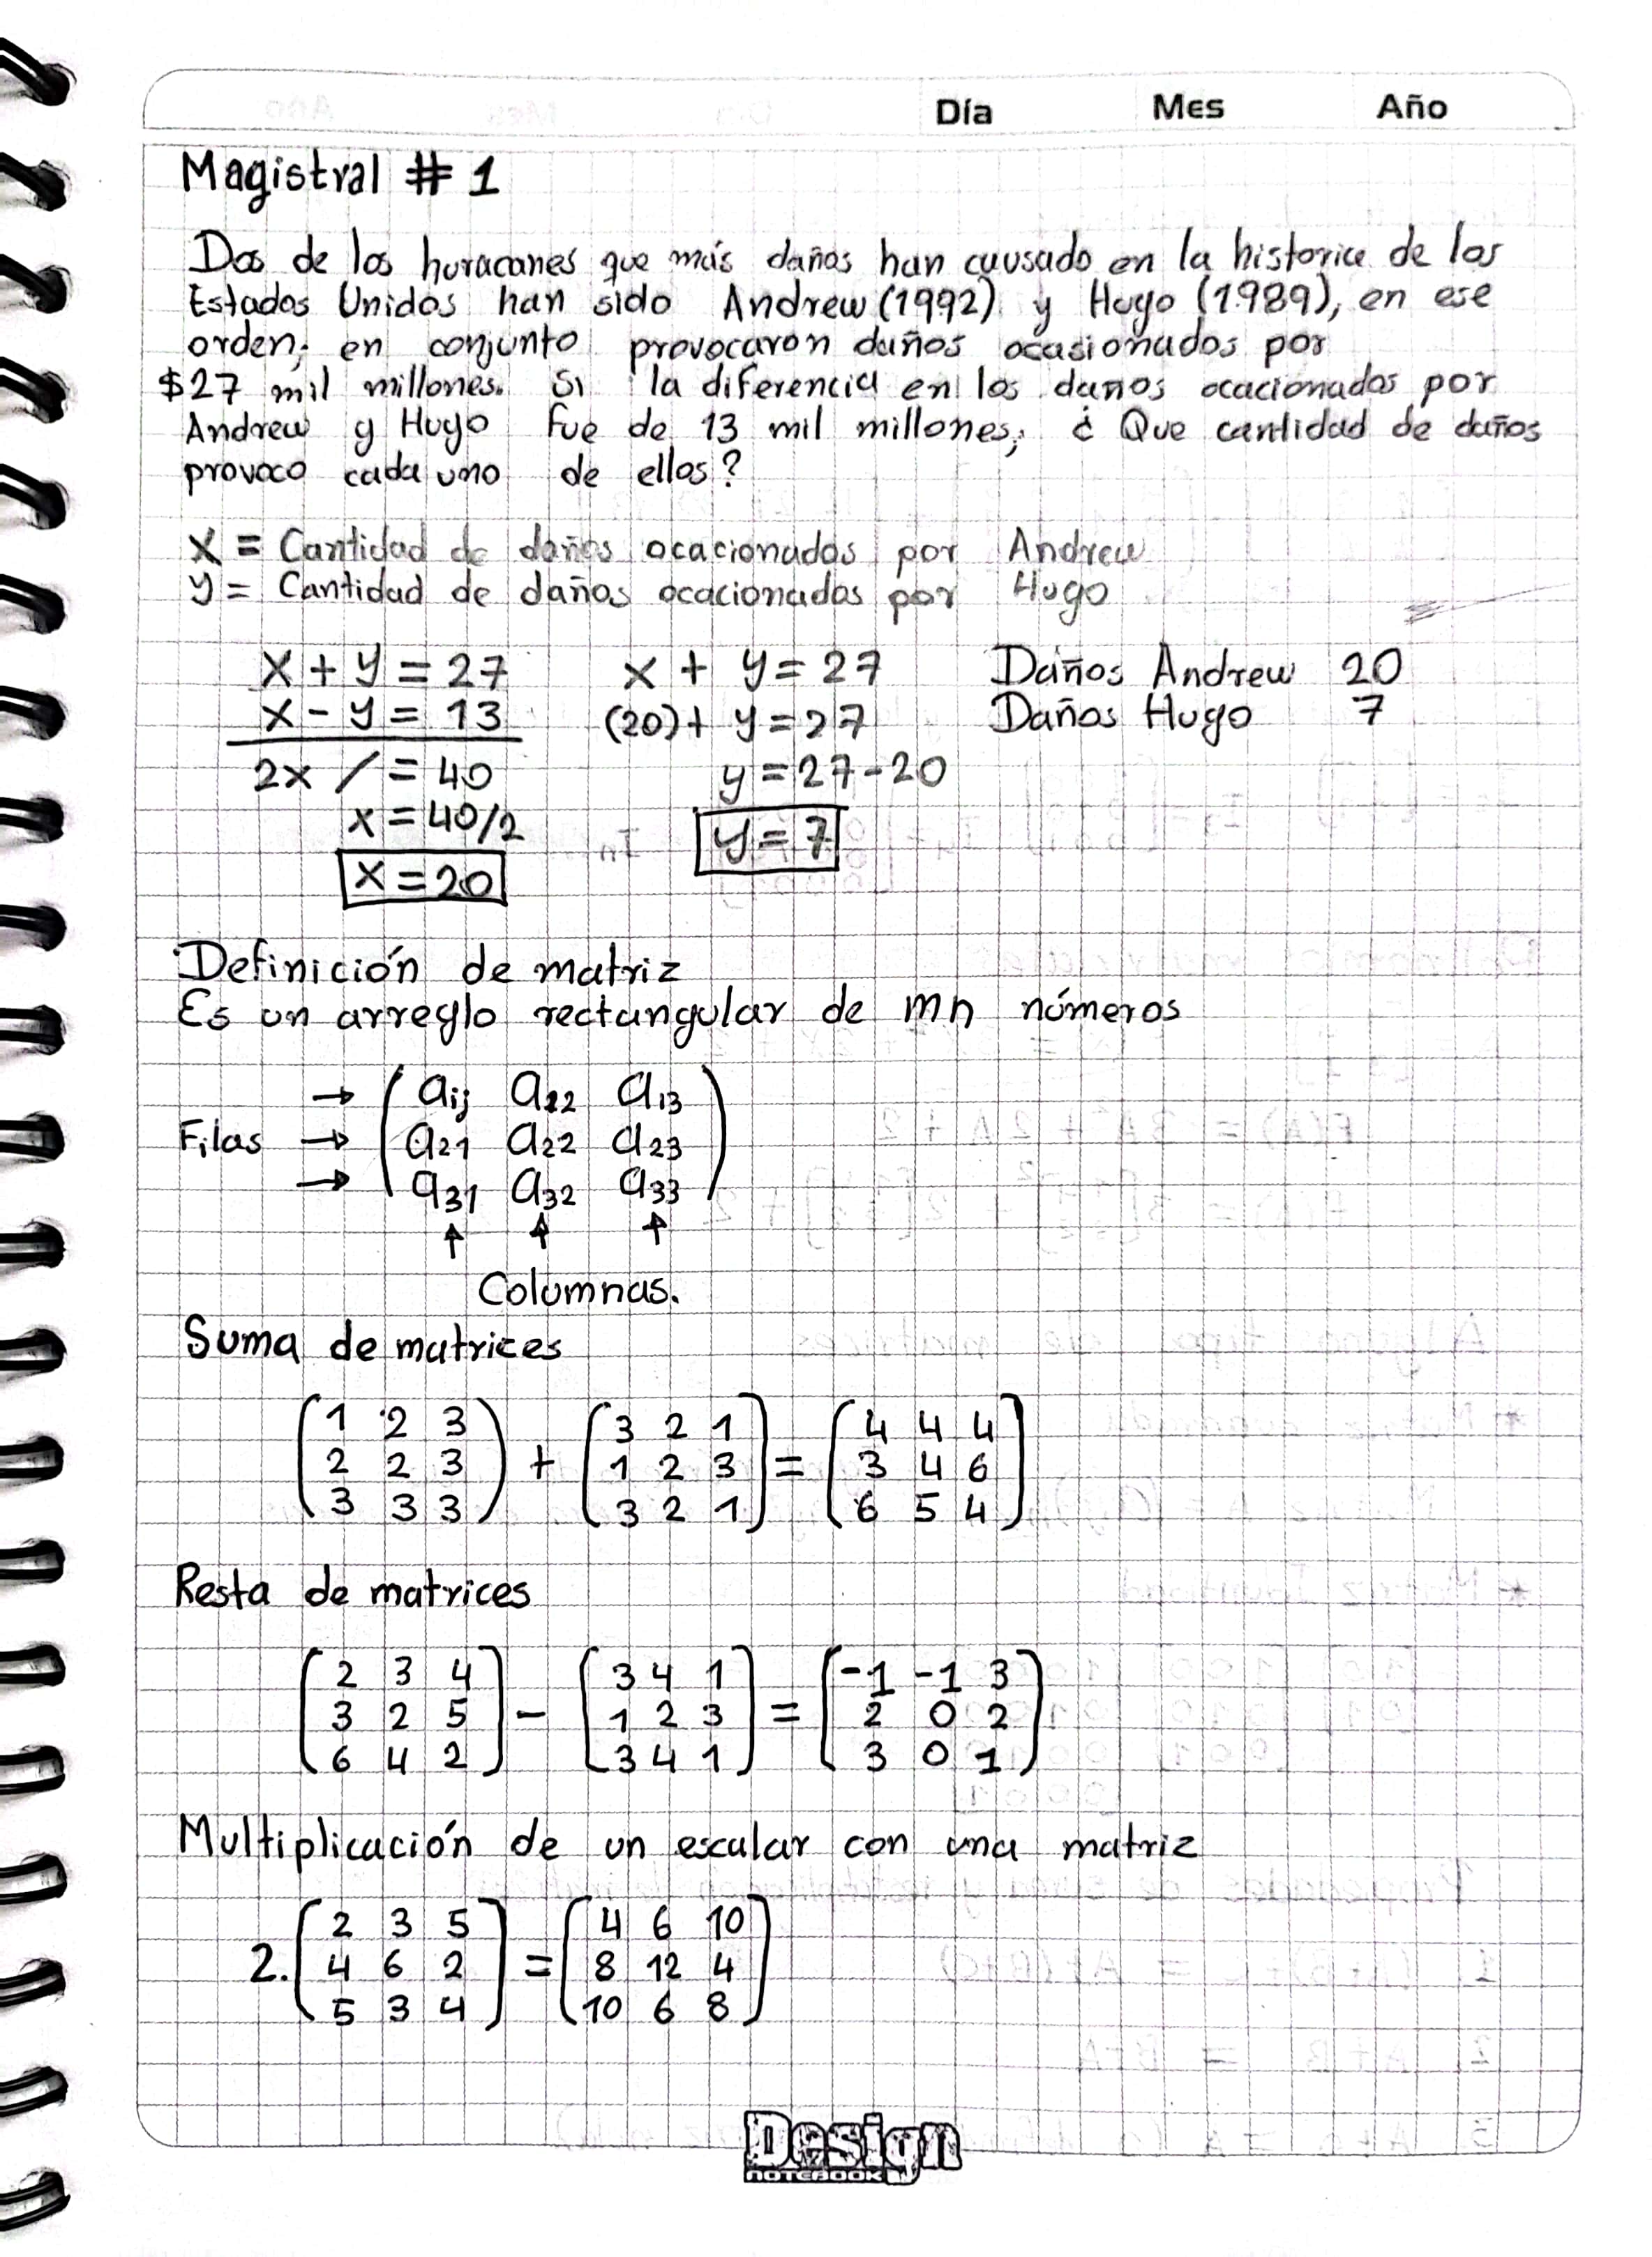 Día Mes Año
Magistral # 1
Dos de los huracanes que más daños han causado en la historia de los
Estados Unidos han sido Andrew (1992) y Hugo (1989), en ese
orden; en conjunto provocaron daños ocasionados por
$27 mil millones. Si la diferencia en los daños ocacionados por
Andrew y Hugo fue de 13 mil millones, ¿ Que cantidad de daños
provoco cada uno de ellos?
X = Cantidad de daños ocacionados por Andrew
y = Cantidad de daños ocacionados por Hugo
x + y = 27 x + y = 27 Daños Andrew 20
x - y = 13 (20) + y = 27 Daños Hugo 7
2x / = 40 y = 27 - 20
x = 40/2 y = 7
x = 20
Definición de matriz
Es un arreglo rectangular de mn números
→ ( aij a22 a13 )
Filas → ( a21 a22 a23 )
→ ( a31 a32 a33 )
↑ ↑ ↑
Columnas.
Suma de matrices
( 1 2 3 ) ( 3 2 1 ) ( 4 4 4 )
( 2 2 3 ) + ( 1 2 3 ) = ( 3 4 6 )
( 3 3 3 ) ( 3 2 1 ) ( 6 5 4 )
Resta de matrices
( 2 3 4 ) ( 3 4 1 ) ( -1 -1 3 )
( 3 2 5 ) - ( 1 2 3 ) = ( 2 0 2 )
( 6 4 2 ) ( 3 4 1 ) ( 3 0 1 )
Multiplicación de un escalar con una matriz
( 2 3 5 ) ( 4 6 10 )
2. ( 4 6 2 ) = ( 8 12 4 )
( 5 3 4 ) ( 10 6 8 )
Design
NOTEBOOK